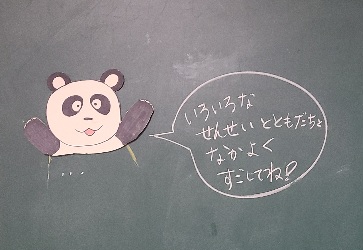 いろいろな
せんせいとともだちと
なかよく
すごしてね!